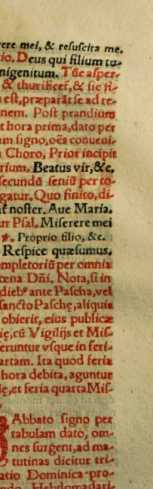 rere mei, & resuscita me.
tio. Deus qui filium tu-
nigenitum. Tūc asper-
& thurificet, & sic fi-
est, præparāt se ad re-
nem. Post prandium
hora prima, dato per
um signo, oēs conueni-
Choro, Prior incipit
rium. Beatus vir, &c.
secundū seniū per to-
gatur. Quo finito, di-
noster. Aue Maria.
ur Psal. Miserere mei
Proprio filio, &c.
Respice quæsumus.
mpletoriū per omnia
cœna Dñi, Nota, si in
dieb⁹ ante Pascha, vel
sancto Pasche, aliquis
obierit, eius publicæ
iæ, cū Vigilijs et Mis-
eruntur vsque in feri-
artam. Ita quod feria
hora debita, aguntur
le, et feria quarta Mis-
Abbato signo per
tabulam dato, om-
nes surgent, ad ma-
tutinas dicitur tri-
atio Dominica pro-